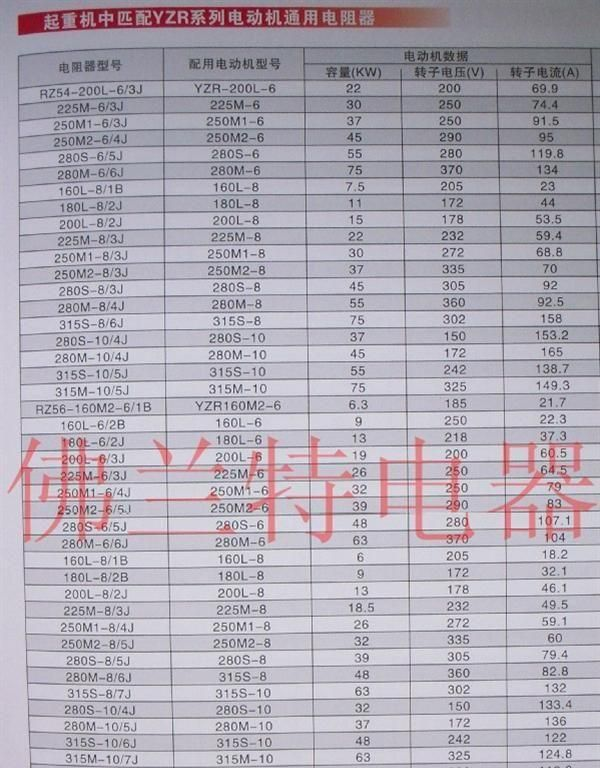 起重机中匹配YZR系列电动机通用电阻器
电阻器型号 配用电动机型号 电动机数据
容量(KW) 转子电压(V) 转子电流(A)
RZ54-200L-6/3J YZR-200L-6 22 200 69.9
225M-6/3J 225M-6 30 250 74.4
250M1-6/3J 250M1-6 37 250 91.5
250M2-6/4J 250M2-6 45 290 95
280S-6/5J 280S-6 55 280 119.8
280M-6/6J 280M-6 75 370 134
160L-8/1B 160L-8 7.5 205 23
180L-8/2J 180L-8 11 172 44
200L-8/2J 200L-8 15 178 53.5
225M-8/3J 225M-8 22 232 59.4
250M1-8/3J 250M1-8 30 272 68.8
250M2-8/3J 250M2-8 37 335 70
280S-8/3J 280S-8 45 305 92
280M-8/4J 280M-8 55 360 92.5
315S-8/6J 315S-8 75 302 158
280S-10/4J 280S-10 37 150 153.2
280M-10/4J 280M-10 45 172 165
315S-10/5J 315S-10 55 242 138.7
315M-10/5J 315M-10 75 325 149.3
RZ56-160M2-6/1B YZR160M2-6 6.3 185 21.7
160L-6/2B 160L-6 9 250 22.3
180L-6/2J 180L-6 13 218 37.3
200L-6/3J 200L-6 19 200 60.5
225M-6/3J 225M-6 26 250 64.5
250M1-6/4J 250M1-6 32 250 79
250M2-6/5J 250M2-6 39 290 83
280S-6/5J 280S-6 48 280 107.1
280M-6/6J 280M-6 63 370 104
160L-8/1B 160L-8 6 205 18.2
180L-8/2B 180L-8 9 172 32.1
200L-8/2J 200L-8 13 178 46.1
225M-8/3J 225M-8 18.5 232 49.5
250M1-8/4J 250M1-8 26 272 59.1
250M2-8/5J 250M2-8 32 335 60
280S-8/5J 280S-8 39 305 79.4
280M-8/6J 315S-8 48 360 82.8
315S-8/7J 315S-10 63 302 132
280S-10/4J 280S-10 32 150 133.4
280M-10/5J 280M-10 37 172 136
315S-10/6J 315S-10 48 242 122
315M-10/7J 315M-10 63 325 124.8
佛兰特电器